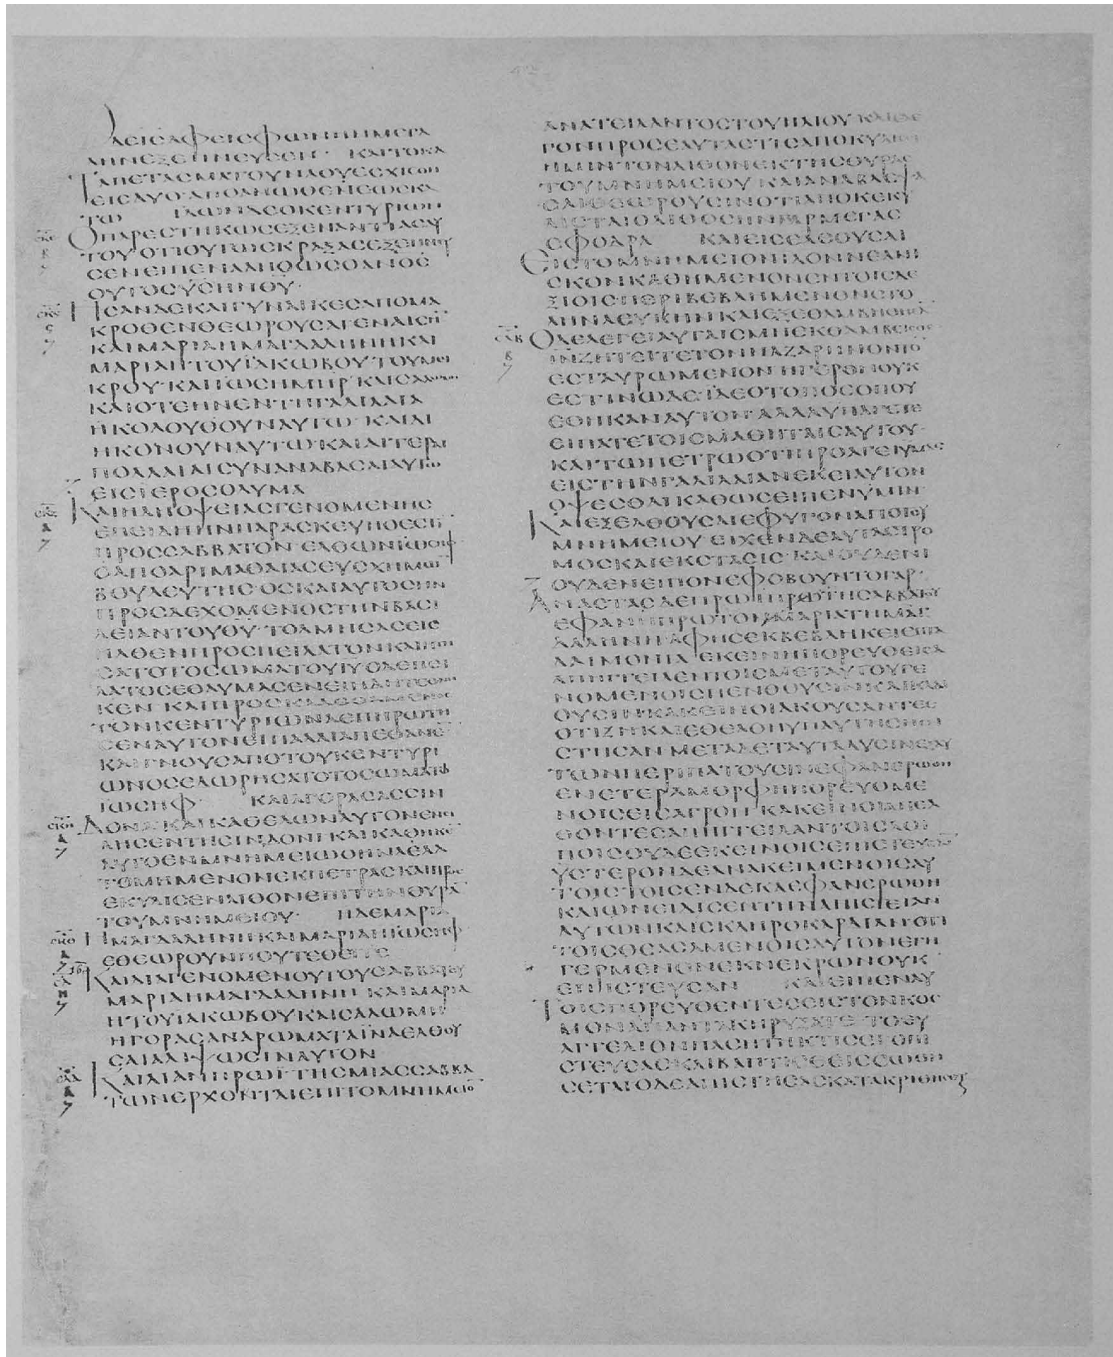 ΔΕΙϹΑΦΕΙϹΦΩΝΗΝΜΕΓΑ
ΛΗΝΕΞΕΠΝΕΥϹΕΝ· ΚΑΙΤΟΚΑ
ΤΑΠΕΤΑϹΜΑΤΟΥΝΑΟΥΕϹΧΙϹΘΗ
ΕΙϹΔΥΟΑΠΟΑΝΩΘΕΝΕΩϹΚΑ
ΤΩ ΙΔΩΝΔΕΟΚΕΝΤΥΡΙΩΝ
ΟΠΑΡΕϹΤΗΚΩϹΕΞΕΝΑΝΤΙΑϹΑΥ
ΤΟΥΟΤΙΟΥΤΩϹΚΡΑΞΑϹΕΞΕΠΝΕΥ
ϹΕΝΕΙΠΕΝΑΛΗΘΩϹΟΑΝΟϹ
ΟΥΤΟϹΥϹΗΝΘΥ·
ΗϹΑΝΔΕΚΑΙΓΥΝΑΙΚΕϹΑΠΟΜΑ
ΚΡΟΘΕΝΘΕΩΡΟΥϹΑΙΕΝΑΙϹΗΝ
ΚΑΙΜΑΡΙΑΗΜΑΓΔΑΛΗΝΗΚΑΙ
ΜΑΡΙΑΗΤΟΥΙΑΚΩΒΟΥΤΟΥΜΙ
ΚΡΟΥ·ΚΑΙΙΩϹΗΜΗΡ·ΚΑΙϹΑΛΩΜΗ
ΚΑΙΟΤΕΗΝΕΝΤΗΓΑΛΙΛΑΙΑ
ΗΚΟΛΟΥΘΟΥΝΑΥΤΩ· ΚΑΙΔΙ
ΗΚΟΝΟΥΝΑΥΤΩ·
ΠΟΛΛΑΙΑΙϹΥΝΑΝΑΒΑϹΑΙΑΥΤΩ
ΕΙϹΙΕΡΟϹΟΛΥΜΑ
ΚΑΙΗΔΗΟΨΕΙΑϹΓΕΝΟΜΕΝΗϹ
ΕΠΕΙΔΗΗΝΠΑΡΑϹΚΕΥΗΟΕϹΤΙ
ΠΡΟϹϹΑΒΒΑΤΟΝ·ΕΛΘΩΝΙΩϹΗΦ
ΟΑΠΟΑΡΙΜΑΘΑΙΑϹΕΥϹΧΗΜΩ
ΒΟΥΛΕΥΤΗϹ·ΟϹΚΑΙΑΥΤΟϹΗΝ
ΠΡΟϹΔΕΧΟΜΕΝΟϹΤΗΝΒΑϹΙ
ΛΕΙΑΝΤΟΥΘΥ·ΤΟΛΜΗϹΑϹΕΙϹ
ΗΛΘΕΝΠΡΟϹΠΕΙΛΑΤΟΝΚΑΙΗΤΗ
ϹΑΤΟΤΟϹΩΜΑΤΟΥΙΥ·ΟΔΕΠΕΙ
ΛΑΤΟϹΕΘΑΥΜΑϹΕΝΕΙΗΔΗΤΕΘΝΗ
ΚΕΝ·ΚΑΙΠΡΟϹΚΑΛΕϹΑΜΕΝΟϹ
ΤΟΝΚΕΝΤΥΡΙΩΝΑΕΠΗΡΩΤΗ
ϹΕΝΑΥΤΟΝΕΙΠΑΛΑΙΑΠΕΘΑΝΕ
ΚΑΙΓΝΟΥϹΑΠΟΤΟΥΚΕΝΤΥΡΙ
ΩΝΟϹΕΔΩΡΗϹΑΤΟΤΟϹΩΜΑΤΩ
ΙΩϹΗΦ· ΚΑΙΑΓΟΡΑϹΑϹϹΙΝ
ΔΟΝΑ·ΚΑΙΚΑΘΕΛΩΝΑΥΤΟΝΕΝΕΙ
ΛΗϹΕΝΤΗϹΙΝΔΟΝΙ·ΚΑΙΚΑΘΗΚΕ
ΑΥΤΟΕΝΜΝΗΜΕΙΩΟΗΝΛΕΛΑ
ΤΟΜΗΜΕΝΟΝΕΚΠΕΤΡΑϹΚΑΙΠΡΟϹ
ΕΚΥΛΙϹΕΝΛΙΘΟΝΕΠΙΤΗΝΘΥΡΑ
ΤΟΥΜΝΗΜΕΙΟΥ· ΗΔΕΜΑΡΙΑ
ΗΜΑΓΔΑΛΗΝΗΚΑΙΜΑΡΙΑΗΙΩϹΗΦ
ΕΘΕΩΡΟΥΝΠΟΥΤΕΘΕΙΤΕ
ΚΑΙΔΙΑΓΕΝΟΜΕΝΟΥΤΟΥϹΑΒΒΑΤΟΥ
ΜΑΡΙΑΗΜΑΓΔΑΛΗΝΗ·ΚΑΙΜΑΡΙΑ
ΗΤΟΥΙΑΚΩΒΟΥΚΑΙϹΑΛΩΜΗ
ΗΓΟΡΑϹΑΝΑΡΩΜΑΤΑΪΝΑΕΛΘΟΥ
ϹΑΙΑΛΙΨΩϹΙΝΑΥΤΟΝ
ΚΑΙΛΙΑΝΠΡΩΙΤΗϹΜΙΑϹϹΑΒΒΑ
ΤΩΝΕΡΧΟΝΤΑΙΕΠΙΤΟΜΝΗΜΕΙΟ
ΑΝΑΤΕΙΛΑΝΤΟϹΤΟΥΗΛΙΟΥΚΑΙΕΛΕ
ΓΟΝΠΡΟϹΕΑΥΤΑϹΤΙϹΑΠΟΚΥΛΙϹΕΙ
ΗΜΙΝΤΟΝΛΙΘΟΝΕΚΤΗϹΘΥΡΑϹ
ΤΟΥΜΝΗΜΕΙΟΥ·ΚΑΙΑΝΑΒΛΕΨΑ
ϹΑΙΘΕΩΡΟΥϹΙΝΟΤΙΑΠΟΚΕΚΥ
ΛΙϹΤΑΙΟΛΙΘΟϹΗΝΓΑΡΜΕΓΑϹ
ϹΦΟΔΡΑ ΚΑΙΕΙϹΕΛΘΟΥϹΑΙ
ΕΙϹΤΟΜΝΗΜΕΙΟΝΙΔΟΝΝΕΑΝΙ
ϹΚΟΝΚΑΘΗΜΕΝΟΝΕΝΤΟΙϹΔΕ
ΞΙΟΙϹΠΕΡΙΒΕΒΛΗΜΕΝΟΝϹΤΟ
ΛΗΝΛΕΥΚΗΝΚΑΙΕΞΕΘΑΜΒΗΘΗϹΑΝ
ΟΔΕΛΕΓΕΙΑΥΤΑΙϹΜΗΕΚΘΑΜΒΕΙϹΘΕ
ΙΝΖΗΤΕΙΤΕΤΟΝΝΑΖΑΡΗΝΟΝΤΟ
ΕϹΤΑΥΡΩΜΕΝΟΝ·ΗΓΕΡΘΗΟΥΚ
ΕϹΤΙΝΩΔΕ·ΪΔΕΟΤΟΠΟϹΟΠΟΥ
ΕΘΗΚΑΝΑΥΤΟΝ·ΑΛΛΑΥΠΑΓΕΤΕ
ΕΙΠΑΤΕΤΟΙϹΜΑΘΗΤΑΙϹΑΥΤΟΥ·
ΚΑΙΤΩΠΕΤΡΩΟΤΙΠΡΟΑΓΕΙΥΜΑϹ
ΕΙϹΤΗΝΓΑΛΙΛΑΙΑΝΕΚΕΙΑΥΤΟΝ
ΟΨΕϹΘΑΙΚΑΘΩϹΕΙΠΕΝΥΜΙΝ·
ΚΑΙΕΞΕΛΘΟΥϹΑΙΕΦΥΓΟΝΑΠΟΤΟΥ
ΜΝΗΜΕΙΟΥ·ΕΙΧΕΝΔΕΑΥΤΑϹΤΡΟ
ΜΟϹΚΑΙΕΚϹΤΑϹΙϹ·ΚΑΙΟΥΔΕΝΙ
ΟΥΔΕΝΕΙΠΟΝΕΦΟΒΟΥΝΤΟΓΑΡ·
ΑΝΑϹΤΑϹΔΕΠΡΩΙΠΡΩΤΗϹΑΒΒΑΤΟΥ
ΕΦΑΝΗΠΡΩΤΟΝΜΑΡΙΑΤΗΜΑΓ
ΔΑΛΗΝΗ·ΑΦΗϹΕΚΒΕΒΛΗΚΕΙΕΠΤΑ
ΔΑΙΜΟΝΙΑ ΕΚΕΙΝΗΠΟΡΕΥΘΕΙϹΑ
ΑΠΗΓΓΕΙΛΕΝΤΟΙϹΜΕΤΑΥΤΟΥΓΕ
ΝΟΜΕΝΟΙϹΠΕΝΘΟΥϹΙΝΚΑΙΚΛΑΙ
ΟΥϹΙΝ·ΚΑΚΕΙΝΟΙΑΚΟΥϹΑΝΤΕϹ
ΟΤΙΖΗΚΑΙΕΘΕΑΘΗΥΠΑΥΤΗϹΗΠΙ
ϹΤΗϹΑΝ·ΜΕΤΑΔΕΤΑΥΤΑΔΥϹΙΝΕΞΑΥ
ΤΩΝΠΕΡΙΠΑΤΟΥϹΙΝΕΦΑΝΕΡΩΘΗ
ΕΝΕΤΕΡΑΜΟΡΦΗΠΟΡΕΥΟΜΕ
ΝΟΙϹΕΙϹΑΓΡΟΝ·ΚΑΚΕΙΝΟΙΑΠΕΛ
ΘΟΝΤΕϹΑΠΗΓΓΕΙΛΑΝΤΟΙϹΛΟΙ
ΠΟΙϹΟΥΔΕΕΚΕΙΝΟΙϹΕΠΙϹΤΕΥϹΑ
ΫϹΤΕΡΟΝΔΕΑΝΑΚΕΙΜΕΝΟΙϹΑΥ
ΤΟΙϹΤΟΙϹΕΝΔΕΚΑΕΦΑΝΕΡΩΘΗ
ΚΑΙΩΝΕΙΔΙϹΕΝΤΗΝΑΠΙϹΤΕΙΑΝ
ΑΥΤΩΝΚΑΙϹΚΛΗΡΟΚΑΡΔΙΑΝΟΤΙ
ΤΟΙϹΘΕΑϹΑΜΕΝΟΙϹΑΥΤΟΝΕΓΗ
ΓΕΡΜΕΝΟΝΕΚΝΕΚΡΩΝΟΥΚ
ΕΠΙϹΤΕΥϹΑΝ ΚΑΙΕΙΠΕΝΑΥ
ΤΟΙϹΠΟΡΕΥΘΕΝΤΕϹΕΙϹΤΟΝΚΟϹ
ΜΟΝΑΠΑΝΤΑΚΗΡΥΞΑΤΕΤΟΕΥ
ΑΓΓΕΛΙΟΝΠΑϹΗΤΗΚΤΙϹΕΙΟΠΙ
ϹΤΕΥϹΑϹΚΑΙΒΑΠΤΙϹΘΕΙϹϹΩΘΗ
ϹΕΤΑΙΟΔΕΑΠΙϹΤΗϹΑϹΚΑΤΑΚΡΙΘΗϹΕΤ